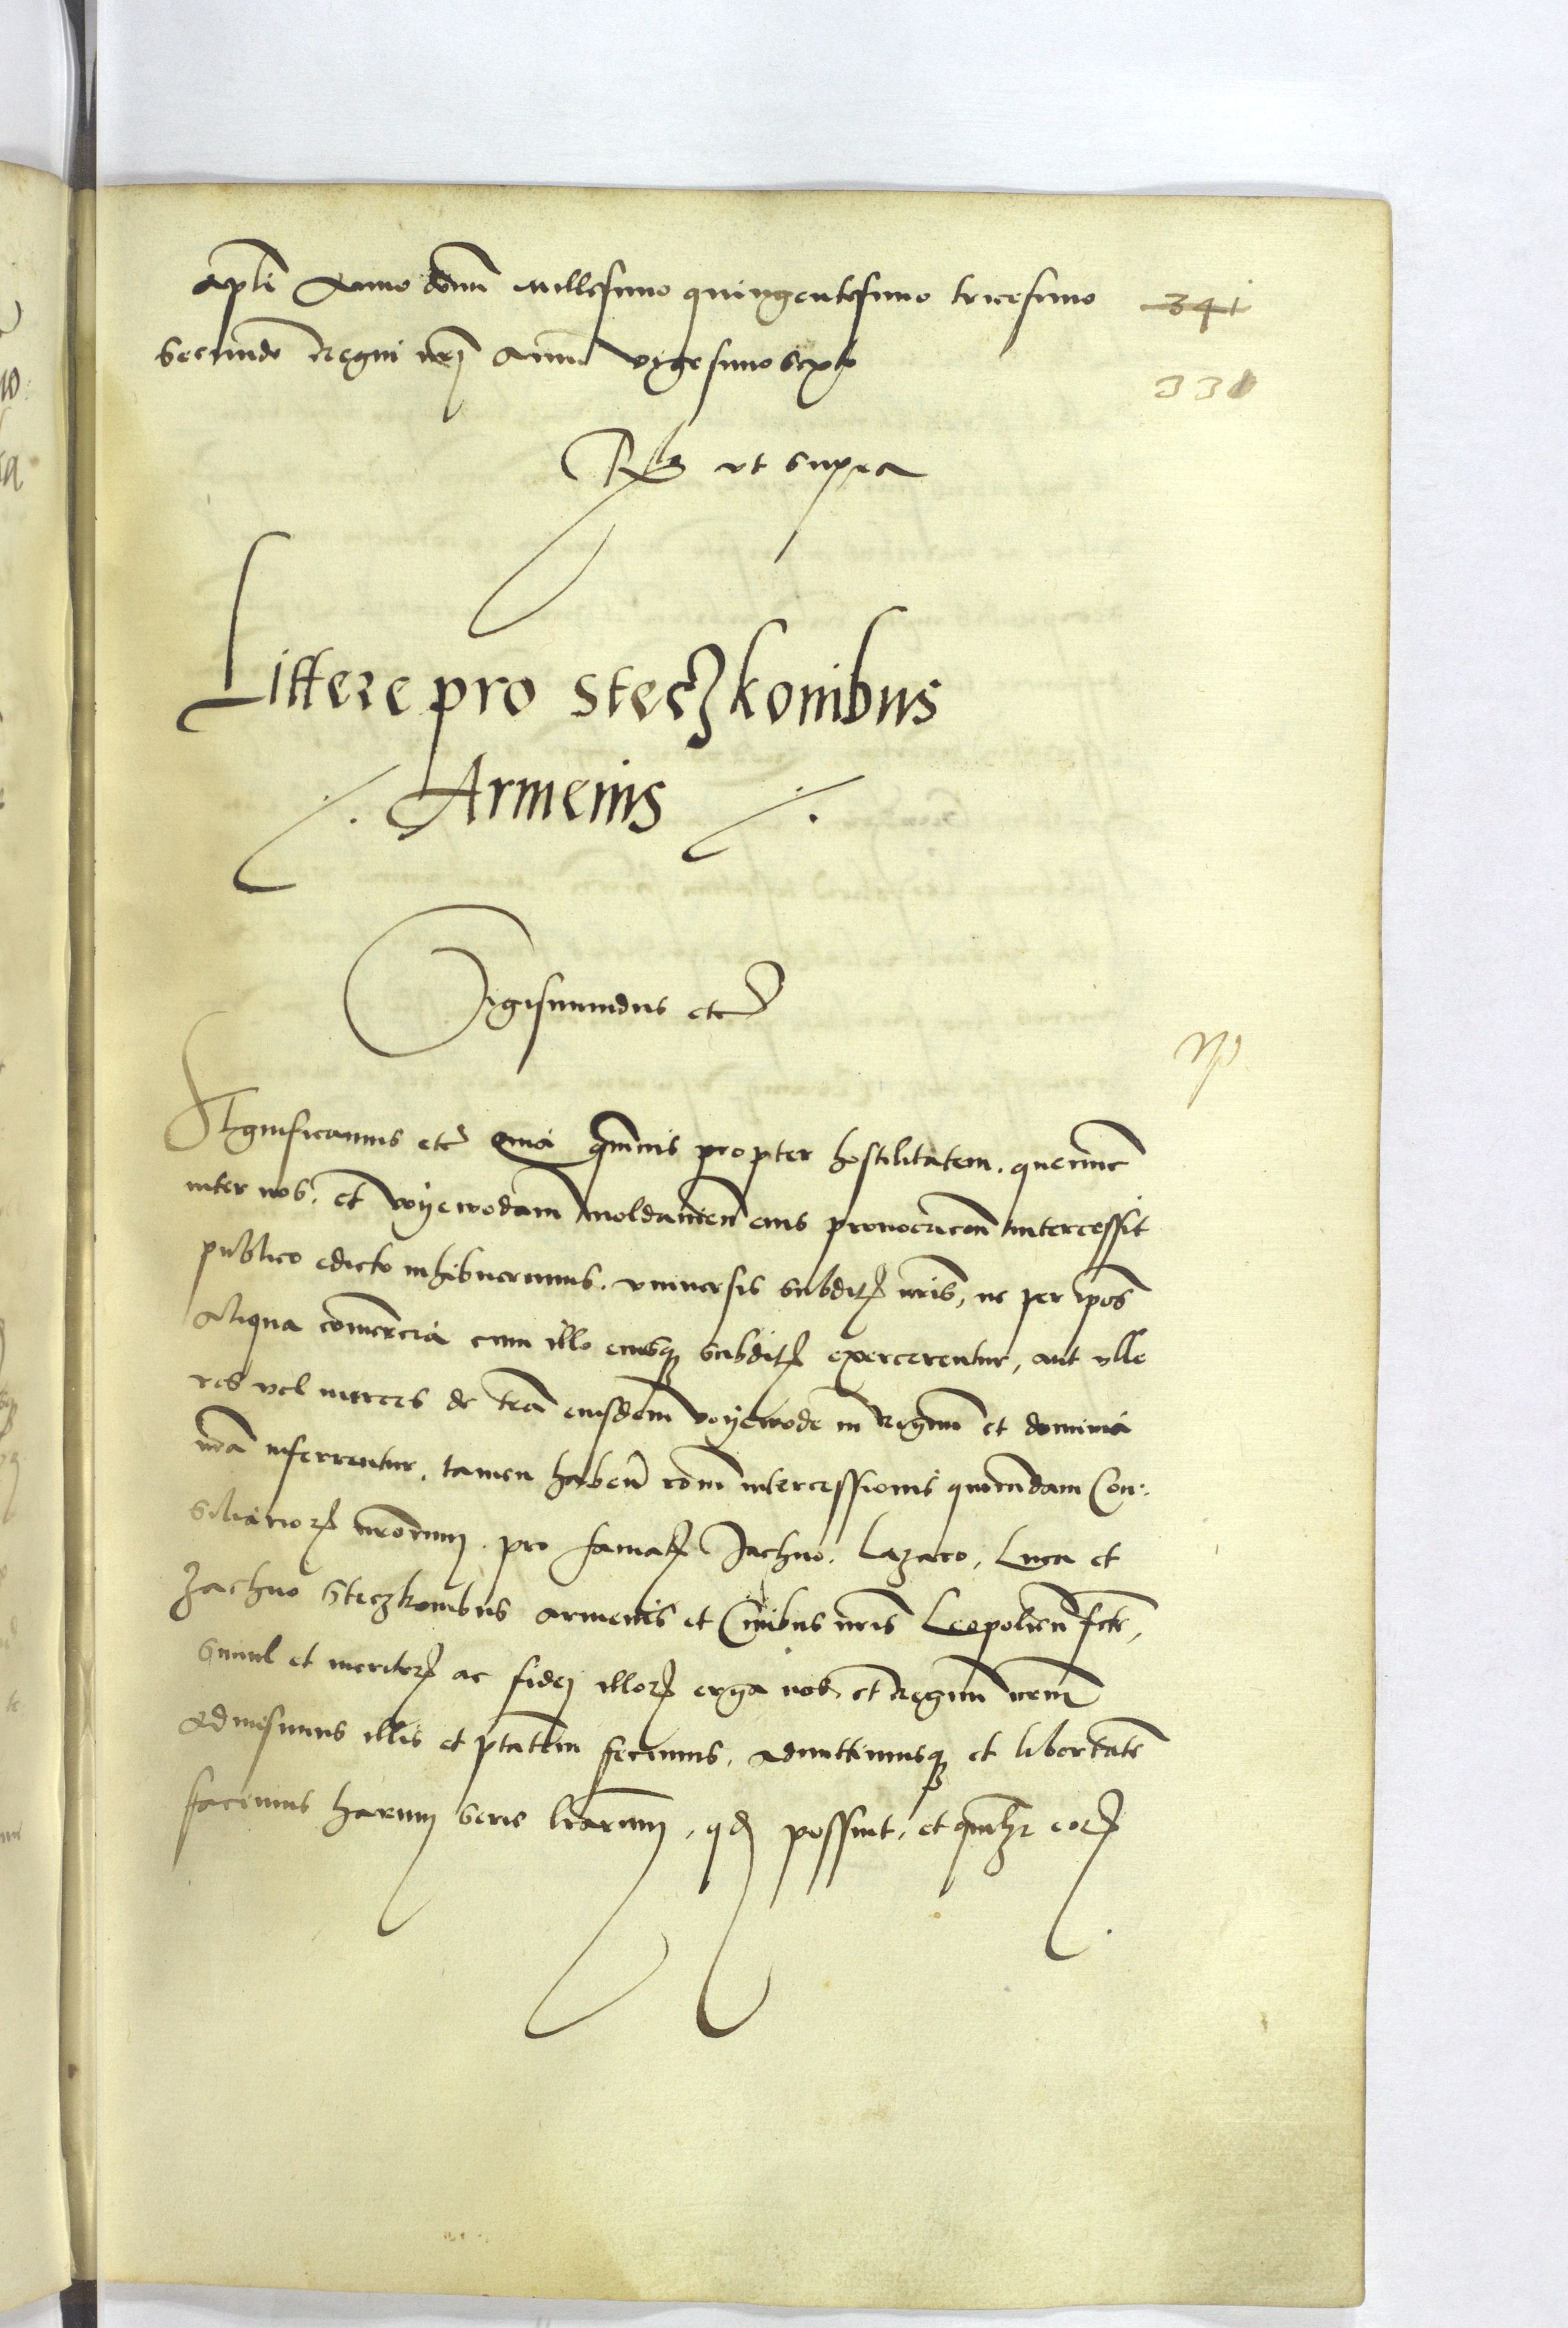 apłi Anno domi millesimo quingentesimo tricesimo
341
secundo Regni nrj Anno vigesimosexto
331
Rls ut supra
Littere pro Steczkonibus
Armenis
Sigismundus etc
Significamus etc Quia quamvis propter hostilitatem. que nunc
inter nos. et voyewodam Moldavien eius provocacion intercessit
publico edicto inhibuerimus. universis subditis nris, ne per ipos
aliqua comercia cum illo eiusque subditis exercerentur, aut ulle
res vel merces de tra eiusdem voyewode in Regnum et dominia
nra inferrentur, tamen haben rom intercessionis quorundam Con-
siliarior nrorum. pro famatis Jachno. Lazaro, Luca et
Zachno Steczkonibus armenis et Civibus nris Leopolien fcte,
simul et meritor ac fidej illor erga nos, et Regnum nrm
admisimus illis et ptatem fecimus, admittimusque et libertate
facimus harum serie lrarum, qd possint, et quilibet eor